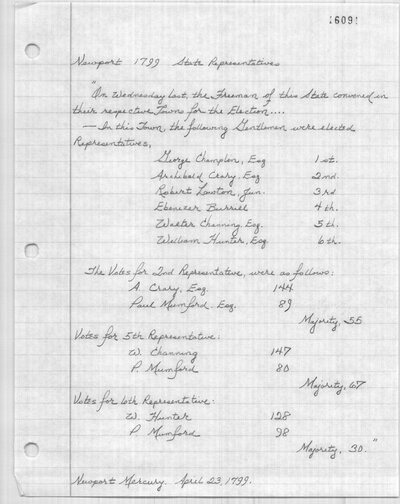 16091
Newport 1799 State Representatives
"On Wednesday last, the Freeman of this State convened in
their respective Towns for the Election....
— In this Town, the following Gentlemen were elected
Representatives,
George Champlon, Esq 1st.
Archibald Crary, Esq 2nd.
Robert Lawton, Jun. 3rd
Ebenezer Burrill 4th.
Walter Channing, Esq. 5th.
William Hunter, Esq 6th.
The Votes for 2nd Representative, were as follows:
A. Crary, Esq. 144
Paul Mumford Esq. 89
Majority, 55
Votes for 5th Representative:
W. Channing 147
P. Mumford 80
Majority, 67
Votes for 6th Representative:
W. Hunter 128
P. Mumford 98
Majority, 30."
Newport Mercury. April 23, 1799.